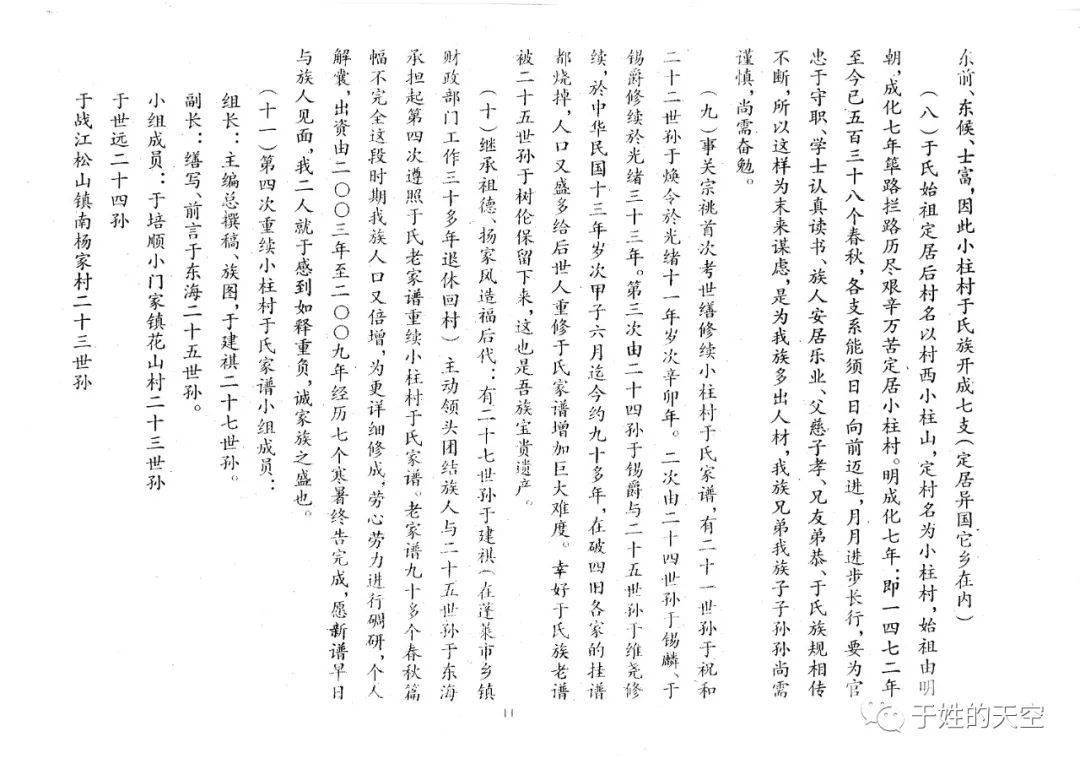 东前、东候、士富，因此小柱村于氏族开成七支（定居异国它乡在内）
（八）于氏始祖定居后村名以村西小柱山，定村名为小柱村，始祖由明
朝，成化七年筚路拦路历尽艰辛万苦定居小柱村。明成化七年：即一四七二年
至今已五百三十八个春秋，各支系能须日日向前迈进，月月进步长行，要为官
忠于守职、学士认真读书、族人安居乐业、父慈子孝、兄友弟恭、于氏族规相传
不断，所以这样为末来谋虑，是为我族多出人材，我族兄弟我族子子孙孙尚需
谨慎，尚需奋勉。
（九）事关宗祧首次考世缮修续小柱村于氏家谱，有二十一世孙于祝和
二十二世孙于焕令於光绪十一年岁次辛卯年。二次由二十四世孙于锡麟、于
锡爵修续於光绪三十三年。第三次由二十四孙于锡爵与二十五世孙于维尧修
续，於中华民国十三年岁次甲子六月迄今约九十多年，在破四旧各家的挂谱
都烧掉，人口又盛多给后世人重修于氏家谱增加巨大难度。幸好于氏族老谱
被二十五世孙于树伦保留下来，这也是吾族宝贵遗产。
（十）继承祖德、扬家风造福后代：有二十七世孙于建祺（在蓬莱市乡镇
财政部门工作三十多年退休回村）主动领头团结族人与二十五世孙于东海
承担起第四次遵照于氏老家谱重续小柱村于氏家谱。老家谱九十多个春秋篇
幅不完全这段时期我族人口又倍增，为更详细修成，劳心劳力进行碉研，个人
解囊，出资由二〇〇三年至二〇〇九年经历七个寒暑终告完成，愿新谱早日
与族人见面，我二人就于感到如释重负，诚家族之盛也。
（十一）第四次重续小柱村于氏家谱小组成员：
组长：主编总撰稿、族图，于建祺二十七世孙。
副长：缮写、前言于东海二十五世孙。
小组成员：于培顺小门家镇花山村二十三世孙
于世远二十四孙
于战江松山镇南杨家村二十三世孙
11
于姓的天空